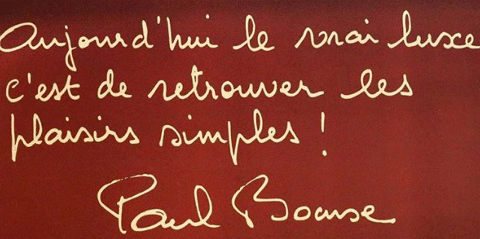 Aujourd'hui le vrai luxe
c'est de retrouver les
plaisirs simples !
Paul Bocuse